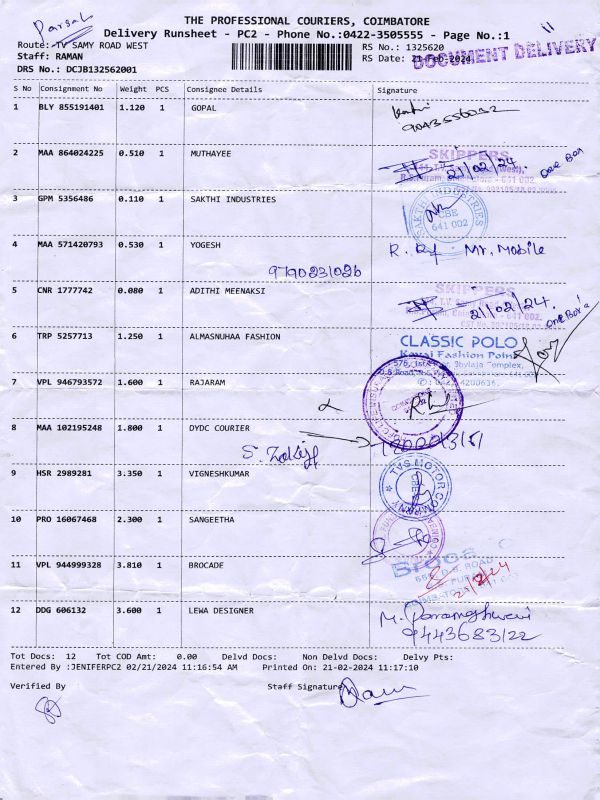 Parsal
THE PROFESSIONAL COURIERS, COIMBATORE
Delivery Runsheet - PC2 - Phone No.:0422-3505555 - Page No.:1
Route: TV SAMY ROAD WEST
RS No.: 1325620
Staff: RAMAN
RS Date: 21-Feb-2024
DOCUMENT DELIVERY
DRS No.: DCJB132562001
S No Consignment No Weight PCS Consignee Details Signature
1 BLY 855191401 1.120 1 GOPAL
2 MAA 864024225 0.510 1 MUTHAYEE
SKIPPERS
21/02/24. one Box
3 GPM 5356486 0.110 1 SAKTHI INDUSTRIES
SAKTHI INDUSTRIES
CBE
641 002
4 MAA 571420793 0.530 1 YOGESH
Mr. Mobile
9790231026
5 CNR 1777742 0.080 1 ADITHI MEENAKSI
SKIPPERS
21/02/24.
one Box
6 TRP 5257713 1.250 1 ALMASNUHAA FASHION
CLASSIC POLO
Kovai Fashion Point
7 VPL 946793572 1.600 1 RAJARAM
8 MAA 102195248 1.800 1 DYDC COURIER
9 HSR 2989281 3.350 1 VIGNESHKUMAR
TVS MOTOR COMPANY
CBE
10 PRO 16067468 2.300 1 SANGEETHA
11 VPL 944999328 3.810 1 BROCADE
12 DDG 606132 3.600 1 LEWA DESIGNER
9443683122
Tot Docs: 12 Tot COD Amt: 0.00 Delvd Docs: Non Delvd Docs: Delvy Pts:
Entered By :JENIFERPC2 02/21/2024 11:16:54 AM Printed On: 21-02-2024 11:17:10
Verified By Staff Signature
Raman